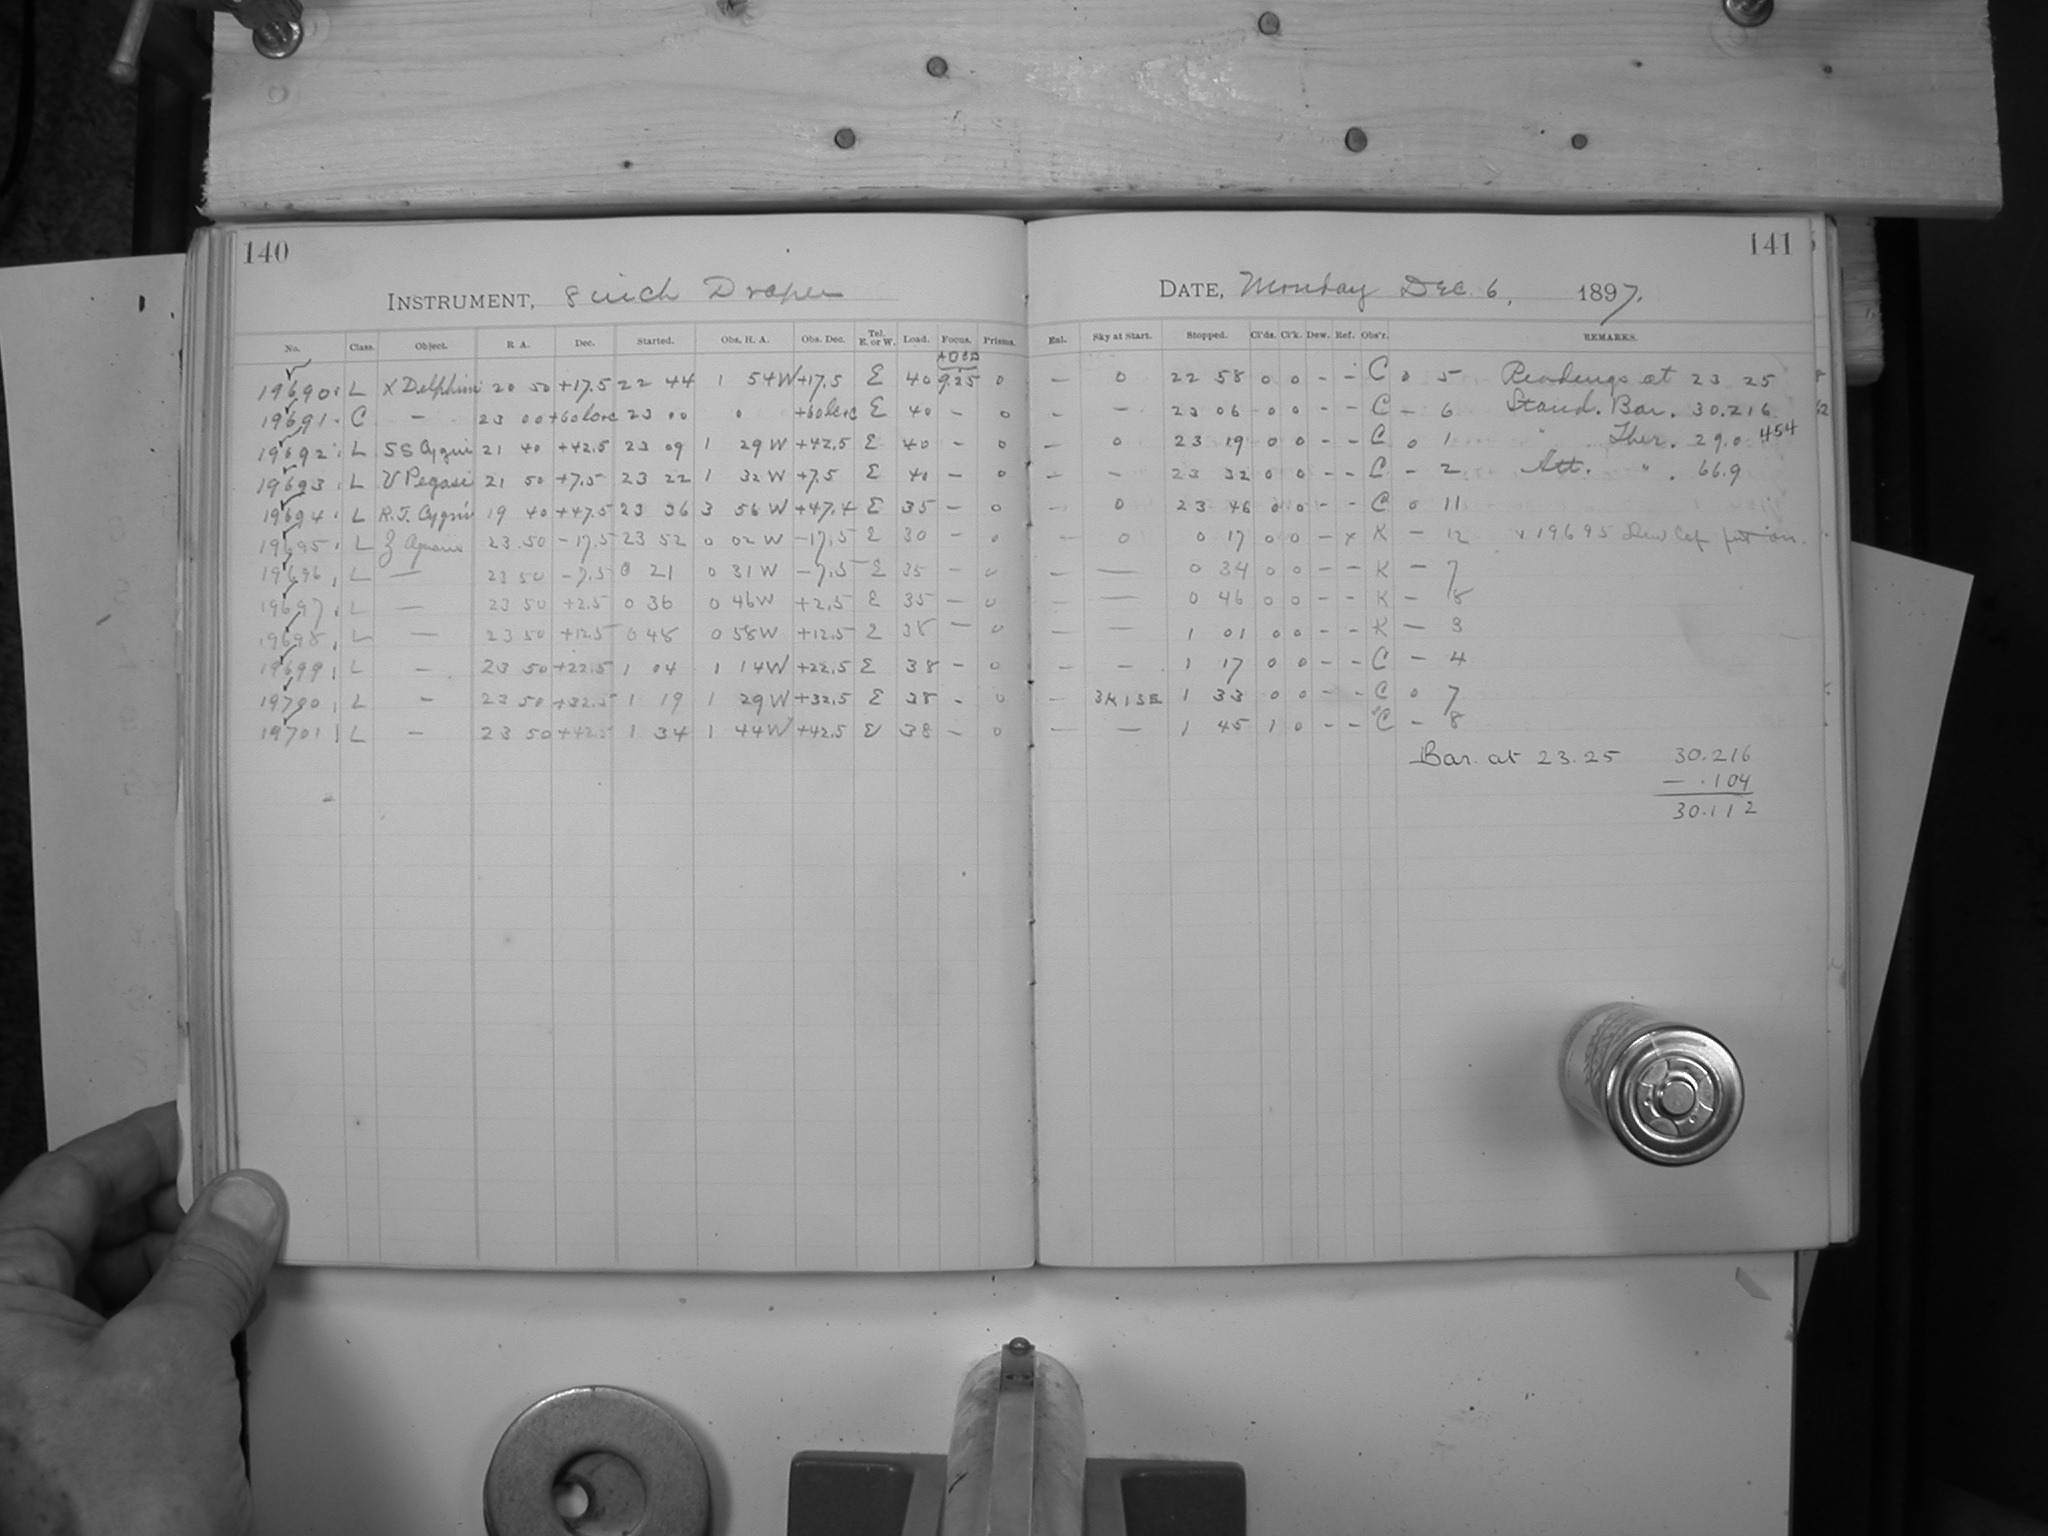 140
INSTRUMENT, 8 inch Draper
No. Class. Object. R. A. Dec. Started. Obs. H. A. Obs. Dec. Tel. E. or W. Load. Focus. Prisms.
19690 L X Delphini 20 50 +17.5 22 44 1 54W +17.5 E 40 9.25 0
19691 C — 23 00 +60 23 00 0 +60 E 40 — 0
19692 L SS Cygni 21 40 +42.5 23 09 1 29W +42.5 E 40 — 0
19693 L V Pegasi 21 50 +7.5 23 22 1 32W +7.5 E 40 — 0
19694 L R.T. Cygni 19 40 +47.5 23 36 3 56W +47.4 E 35 — 0
19695 L Z 23.50 -17.5 23 52 0 02W -17.5 E 30 — 0
19696 L — 23 50 -7.5 0 21 0 31W -7.5 E 35 — 0
19697 L — 23 50 +2.5 0 36 0 46W +2.5 E 35 — 0
19698 L — 23 50 +12.5 0 48 0 58W +12.5 E 38 — 0
19699 L — 23 50 +22.5 1 04 1 14W +22.5 E 38 — 0
19700 L — 23 50 +32.5 1 19 1 29W +32.5 E 38 — 0
19701 L — 23 50 +42.5 1 34 1 44W +42.5 E 38 — 0
141
DATE, Monday Dec. 6, 1897.
Enl. Sky at Start. Stopped. Cl'ds. Cl'k. Dew. Ref. Obs'r. REMARKS.
— 0 22 58 0 0 - - C 0 5 Readings at 23 25
— — 23 06 0 0 - - C — 6 Stand. Bar. 30.216
— 0 23 19 0 0 - - C 0 1 " Ther. 29.0 454
— — 23 32 0 0 - - C — 2 Att. " . 66.9
— 0 23 46 0 0 - - C 0 11
— 0 0 17 0 0 - x K — 12 x 19695 Dew Cap put on.
— — 0 34 0 0 - - K — 7
— — 0 46 0 0 - - K — 8
— — 1 01 0 0 - - K — 3
— — 1 17 0 0 - - C — 4
— 1 33 0 0 - - C 0 7
— — 1 45 1 0 - - C — 8
Bar. at 23.25 30.216
— .104
30.112